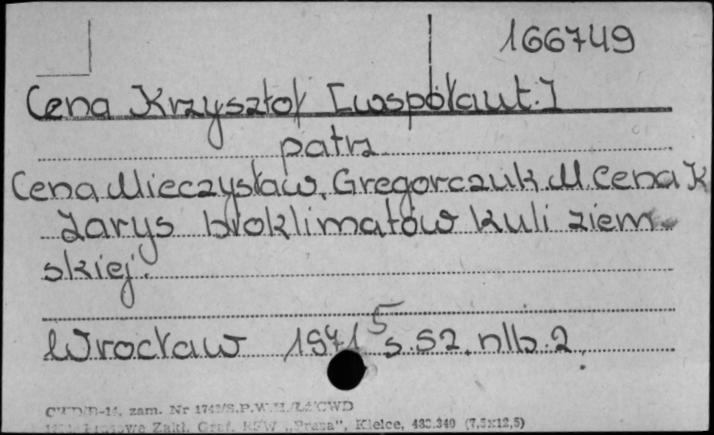 166749
Cena Krzysztof [współaut.]
patrz
Cena Mieczysław, Gregorczuk M. Cena K
Zarys bioklimatów kuli ziem-
skiej.
Wrocław 1971 s. 52. nlb. 2.
5
zam. Nr
Zakł. Graf. RSW „Prasa", Kielce, 480.340 (7,5x12,5)